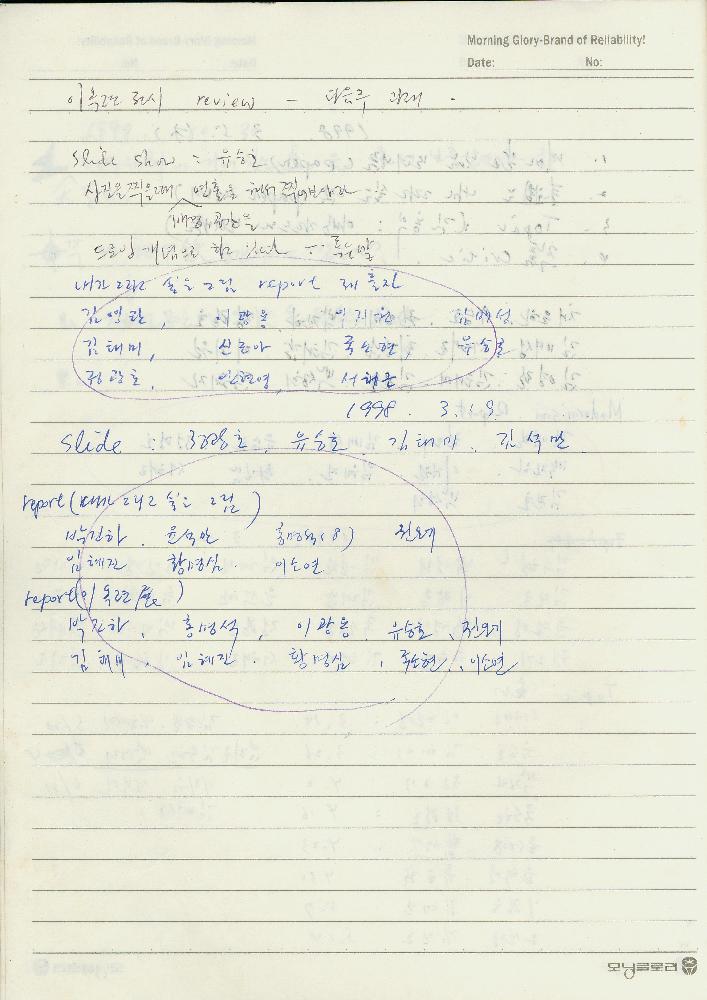 Morning Glory-Brand of Reliability!
Date: No:
이옥련 전시 review – 다음주 과제.
slide show : 유승호
사진을 찍을때 연출을 해서 찍어보아라
배경 공간을
드로잉 개념으로 하고 있다
내가 그리고 싶은 그림 report 제출자
김영란, 이광용 이지현
김태미, 신 국소현, 유승호
정광호, 안현영, 서해근
1998. 3. 19
slide : 정광호, 유승호, 김태미, 김석만.
report (내가 그리고 싶은 그림)
박진하. 윤석만 홍명석(8) 진오례
임혜진 황명심. 이소연
report (이옥련 展)
박진하, 홍명석, 이광용. 유승호, 진오례
김태미. 임혜진. 황명심, 국소현, 이소연
모닝글로리